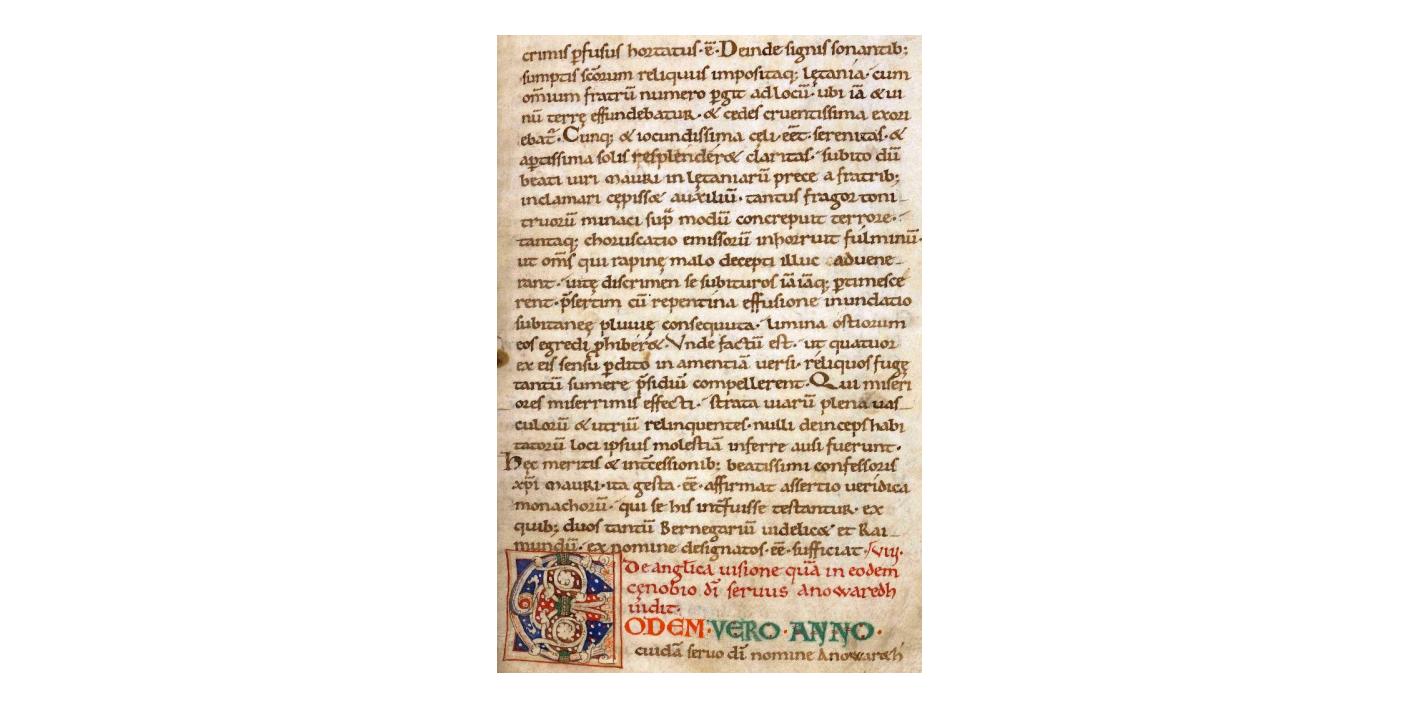 crimis p̄fusus hortatus·ē·Deinde signis sonantib;
sumptis sc̄orum reliquiis impositaq; lętania·cum
om̄ium fratrū numero p̄git ad locū·ubi iā & ui
nū terrę effundebatur·& cedes cruentissima exori
ebat͛·Cunq; & iocundissima cęli eēt·serenitas·&
ap̄tissima solis resplender& claritas·subito dū
beati uiri mauri in lętaniarū prece a fratrib;
inclamari cępiss& auxiliū·tantus fragor toni-
truorū minaci sup͛ modū concrepuit terrore·
tantaq; choruscatio emissorū inhorruit fulminū·
ut om̄s qui rapinę malo decepti illuc aduene-
rant·uitę discrimen se subituros iāiāq; p̄timesce
rent·p̄sertim cū repentina effusione inundatio
subitaneę pluuię consequuta·limina ostiorum
eos egredi p̄hiber&·Vnde factū est·ut quatuor
ex eis sensu p̄dito in amentiā uersi·reliquos fugę
tantū sumere p̄sidiū compellerent·Qui miseri
ores miserrimis effecti·strata uiarū plena uas-
culorū & utriū relinquentes·nulli deinceps habi
tatorū loci ipsius molestiā inferre ausi fuerunt·
Hęc meritis & int̄cessionib; beatissimi confessoris
xp̄i mauri·ita gesta·eē·affirmat assertio ueridica
monachorū·qui se his int̄fuisse testantur·ex
quib; duos tantū Bernegariū uidelic& et Rai-
mundū·ex nomine designatos·eē·sufficiat·
De anglica uisione quā in eodem
cęnobio dī seruus anowaredh
uidit·
EODEM·VERO·ANNO·
cuidā seruo dī nomine Anowaredh